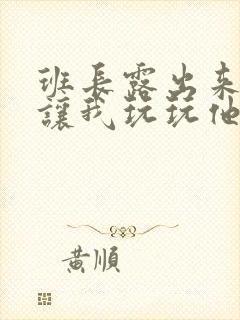 班長露出来
讓我玩玩他
黃順